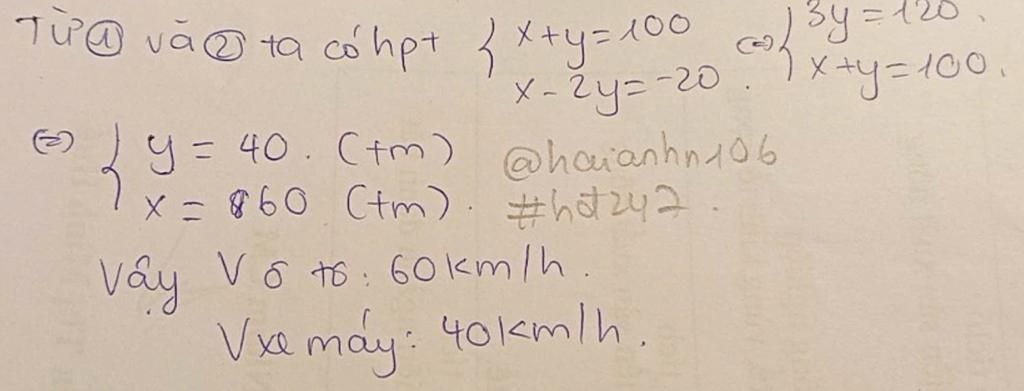 Từ ① và ② ta có hpt { x+y=100 x-2y=-20. <=> { 3y=120. x+y=100.
<=> { y = 40. (tm) @haianhn106
x = 60 (tm). #hot247.
Vậy V ô tô: 60km/h.
Vxe máy: 40km/h.